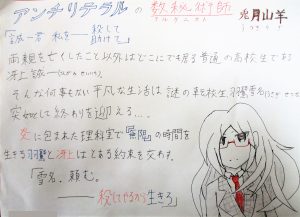 アンチリテラルの数秘術師
アルケニスト
兎月山羊
「誠一君 私を――殺して
助けて」
両親を亡くしたこと以外はどこにでも居る普通の高校生であ
る冴上誠一
そんな何事もない平凡な生活は謎の転校生、羽鷺雪名
突如として終わりを迎える…。
炎に包まれた理科室で『無限』の時間を
生きる羽鷺と冴上はとある約束を交わす。
「雪名、頼む。
――殺してやるから生きろ」